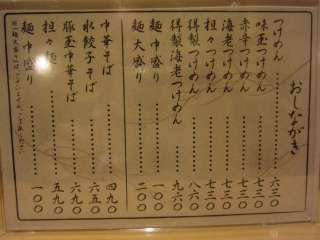 おしながき
つけめん……六三〇
味玉つけめん……七三〇
赤辛つけめん……七三〇
海老つけめん……七三〇
担々つけめん……七三〇
得製つけめん……八六〇
得製海老つけめん……九六〇
麺中盛り……一〇〇
麺大盛り……二〇〇
中華そば……四九〇
水餃子そば……六五〇
豚玉中華そば……六九〇
担々麺……五九〇
麺中盛り……一〇〇